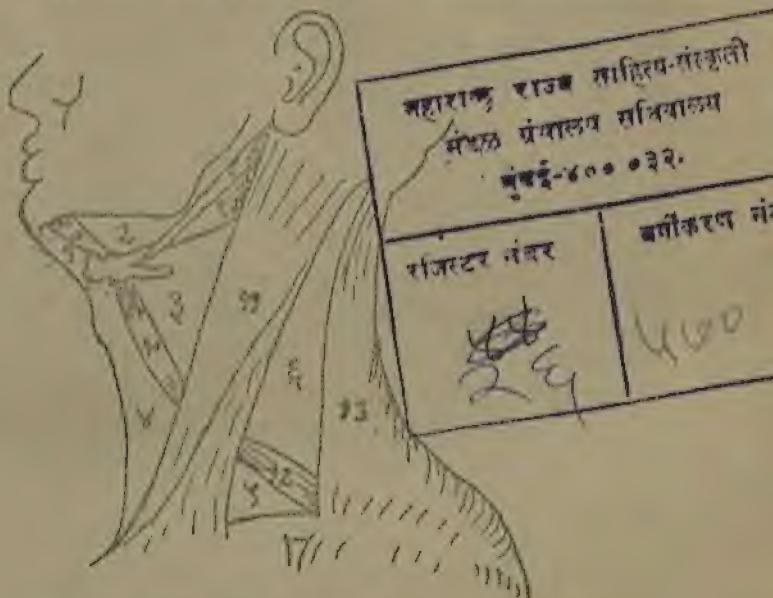 महाराष्ट्र राज्य साहित्य-संस्कृती
मंडळ ग्रंथालय सचिवालय
मुंबई-४०० ०३२.
रजिस्टर नंबर
वर्गीकरण नं
२६
५७०
२
३
११
४
६
१३
१२
५